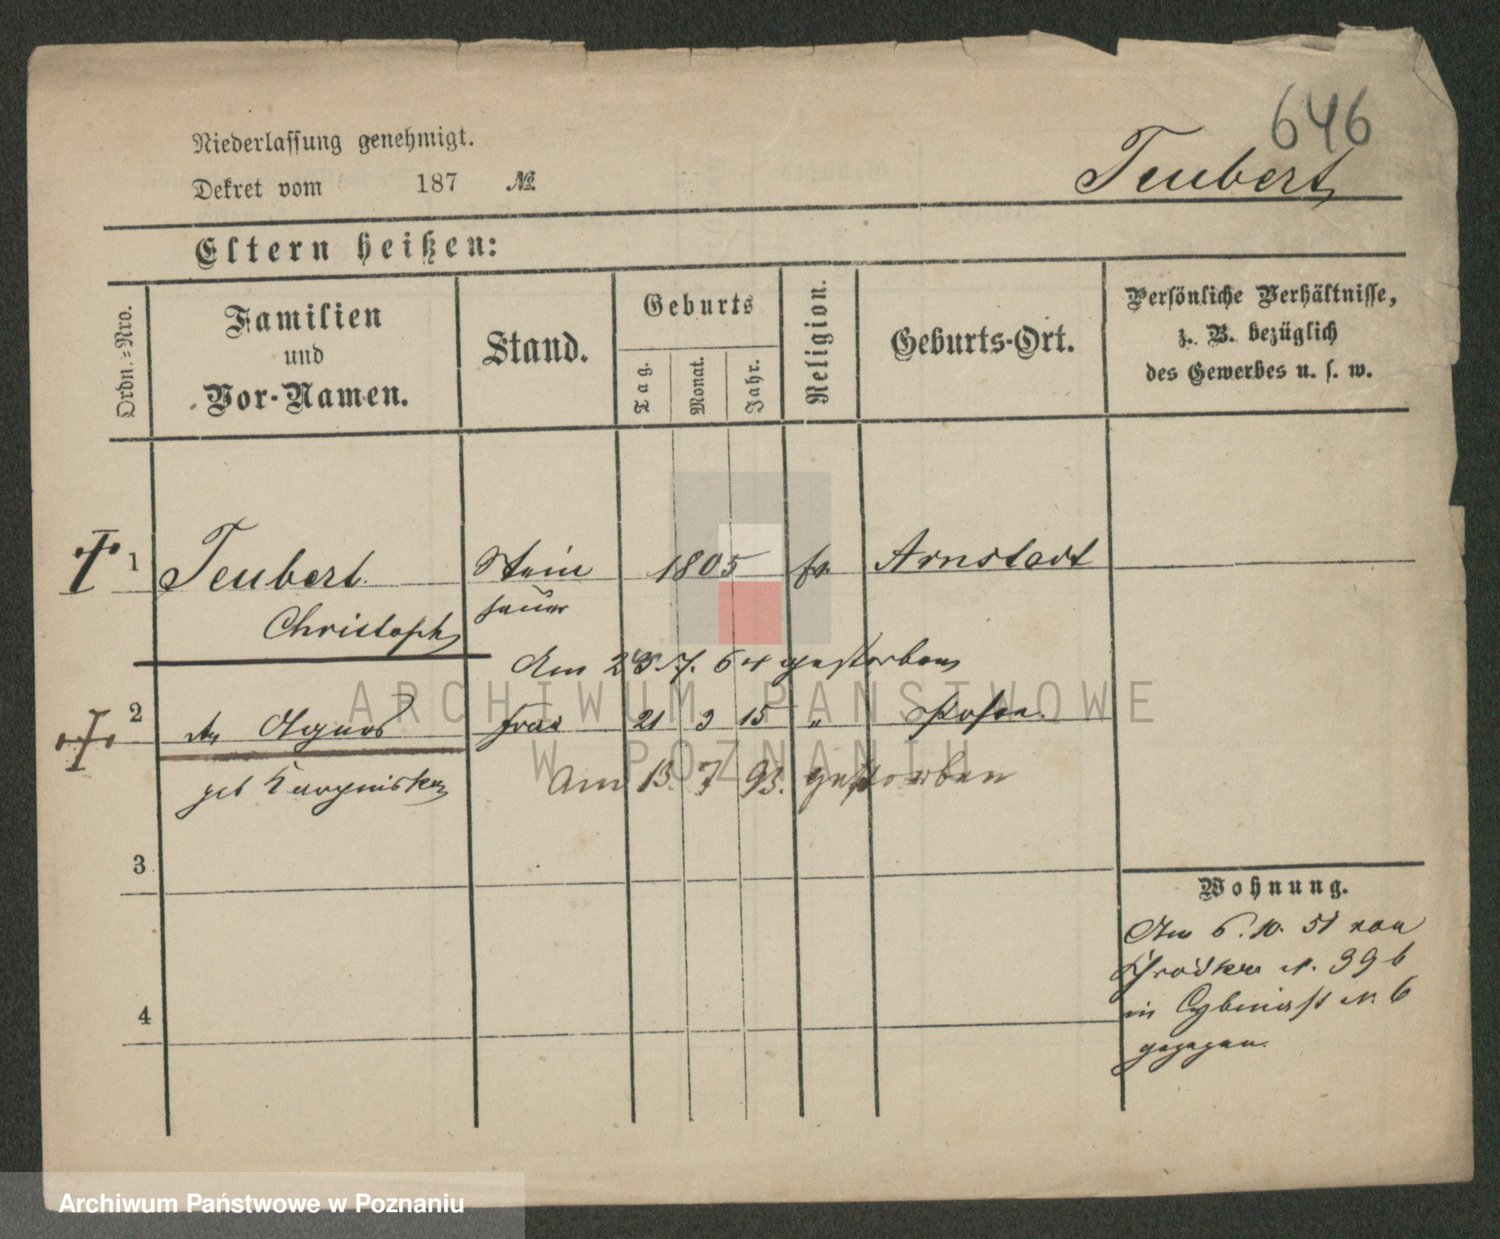 646
Niederlassung genehmigt.
Dekret vom 187 №
Teubert
Eltern heißen:
Ordn.=Nro.
Familien
und
Vor-Namen.
Stand.
Geburts
Tag.
Monat.
Jahr.
Religion.
Geburts-Ort.
Persönliche Verhältnisse,
z. B. bezüglich
des Gewerbes u. s. w.
1 Teubert Stein 1805 Arnstadt
Christoph hauer
Am 23. 7. 64 gestorben
2 Agnes Frau 21 3 15 " Posen
geb
Am 13. 7 93. gestorben
3
4
Wohnung.
Am 6. 10. 51 von
Schrodka N. 39 b
in N. 6
gezogen.
ARCHIWUM PAŃSTWOWE
W POZNANIU
Archiwum Państwowe w Poznaniu